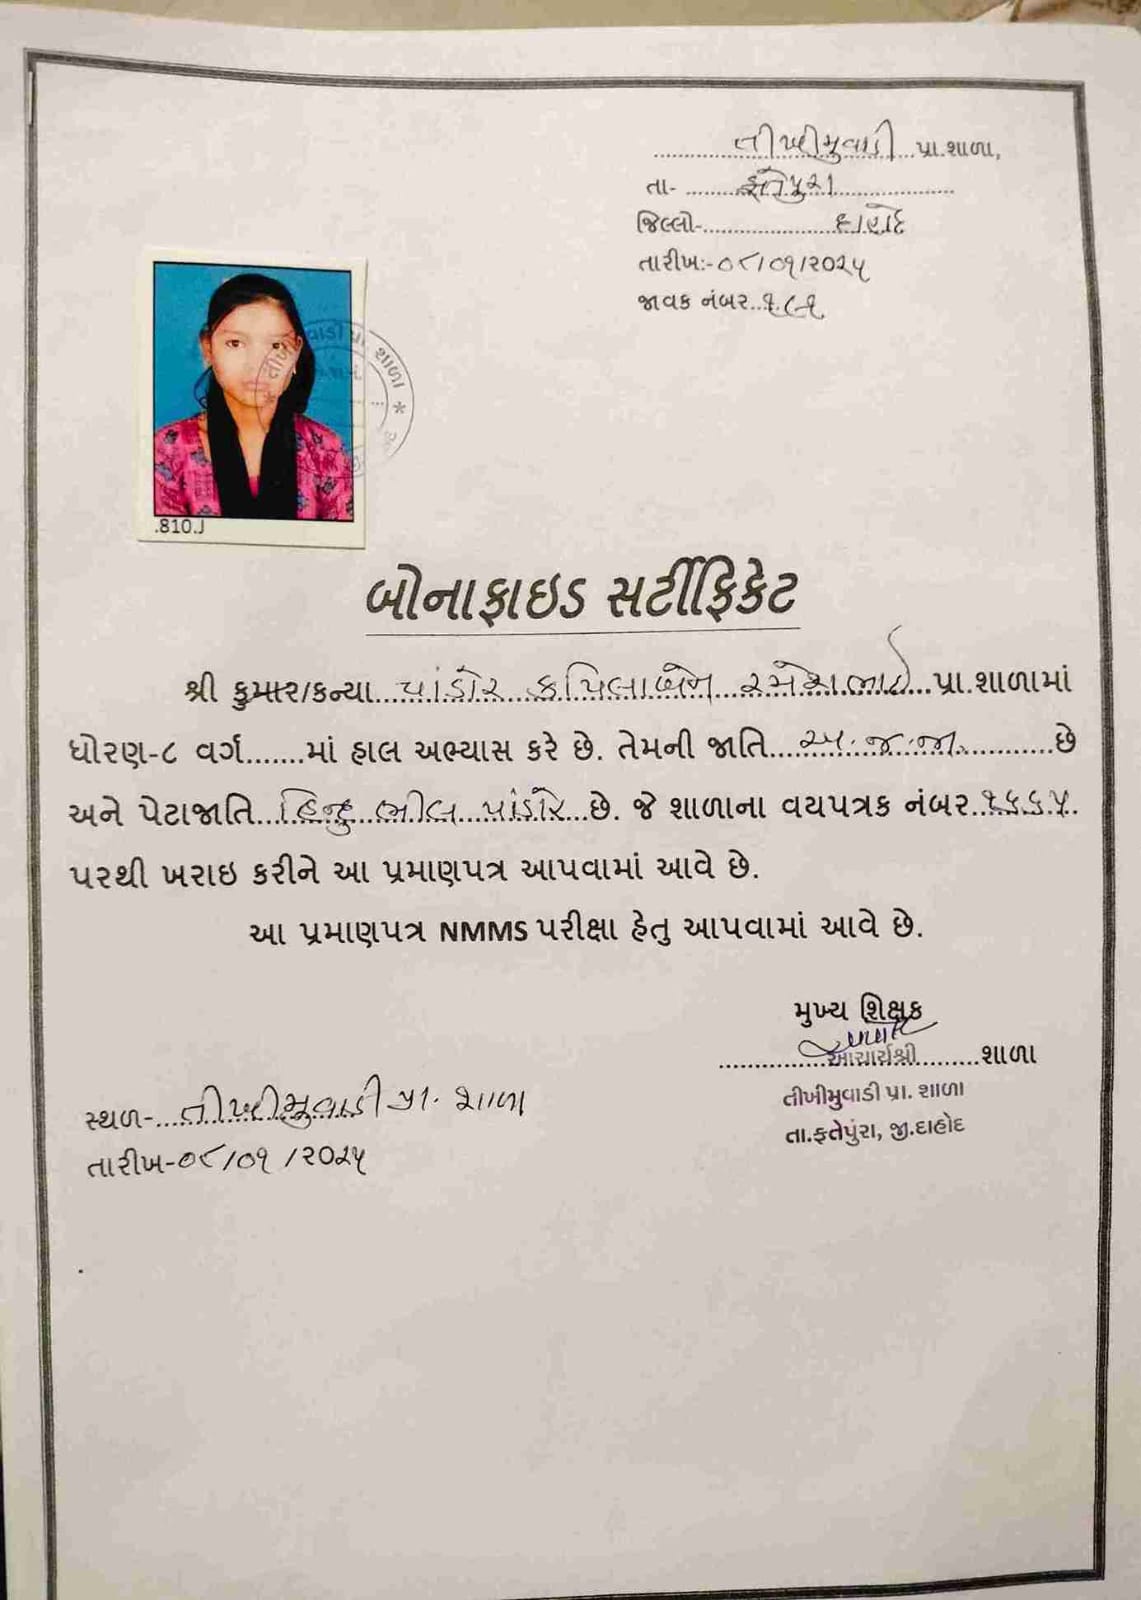 તીખીમુવાડી પ્રા.શાળા,
તા- ફતેપુરા
જિલ્લો- દાહોદ
તારીખ:-૦૮/૦૧/૨૦૨૫
જાવક નંબર..૧૮૧
.810.J
બોનાફાઇડ સર્ટીફિકેટ
શ્રી કુમાર/કન્યા પાંડોર કપિલાબેન રમેશભાઈ પ્રા.શાળામાં
ધોરણ-૮ વર્ગ.......માં હાલ અભ્યાસ કરે છે. તેમની જાતિ અ.જ.જા. છે
અને પેટાજાતિ હિન્દુ ભીલ પાંડોર છે. જે શાળાના વયપત્રક નંબર
પરથી ખરાઇ કરીને આ પ્રમાણપત્ર આપવામાં આવે છે.
આ પ્રમાણપત્ર NMMS પરીક્ષા હેતુ આપવામાં આવે છે.
મુખ્ય શિક્ષક
આચાર્યશ્રી શાળા
તીખીમુવાડી પ્રા. શાળા
તા.ફતેપુરા, જી.દાહોદ
સ્થળ- તીખીમુવાડી પ્રા. શાળા
તારીખ-૦૮/૦૧/૨૦૨૫